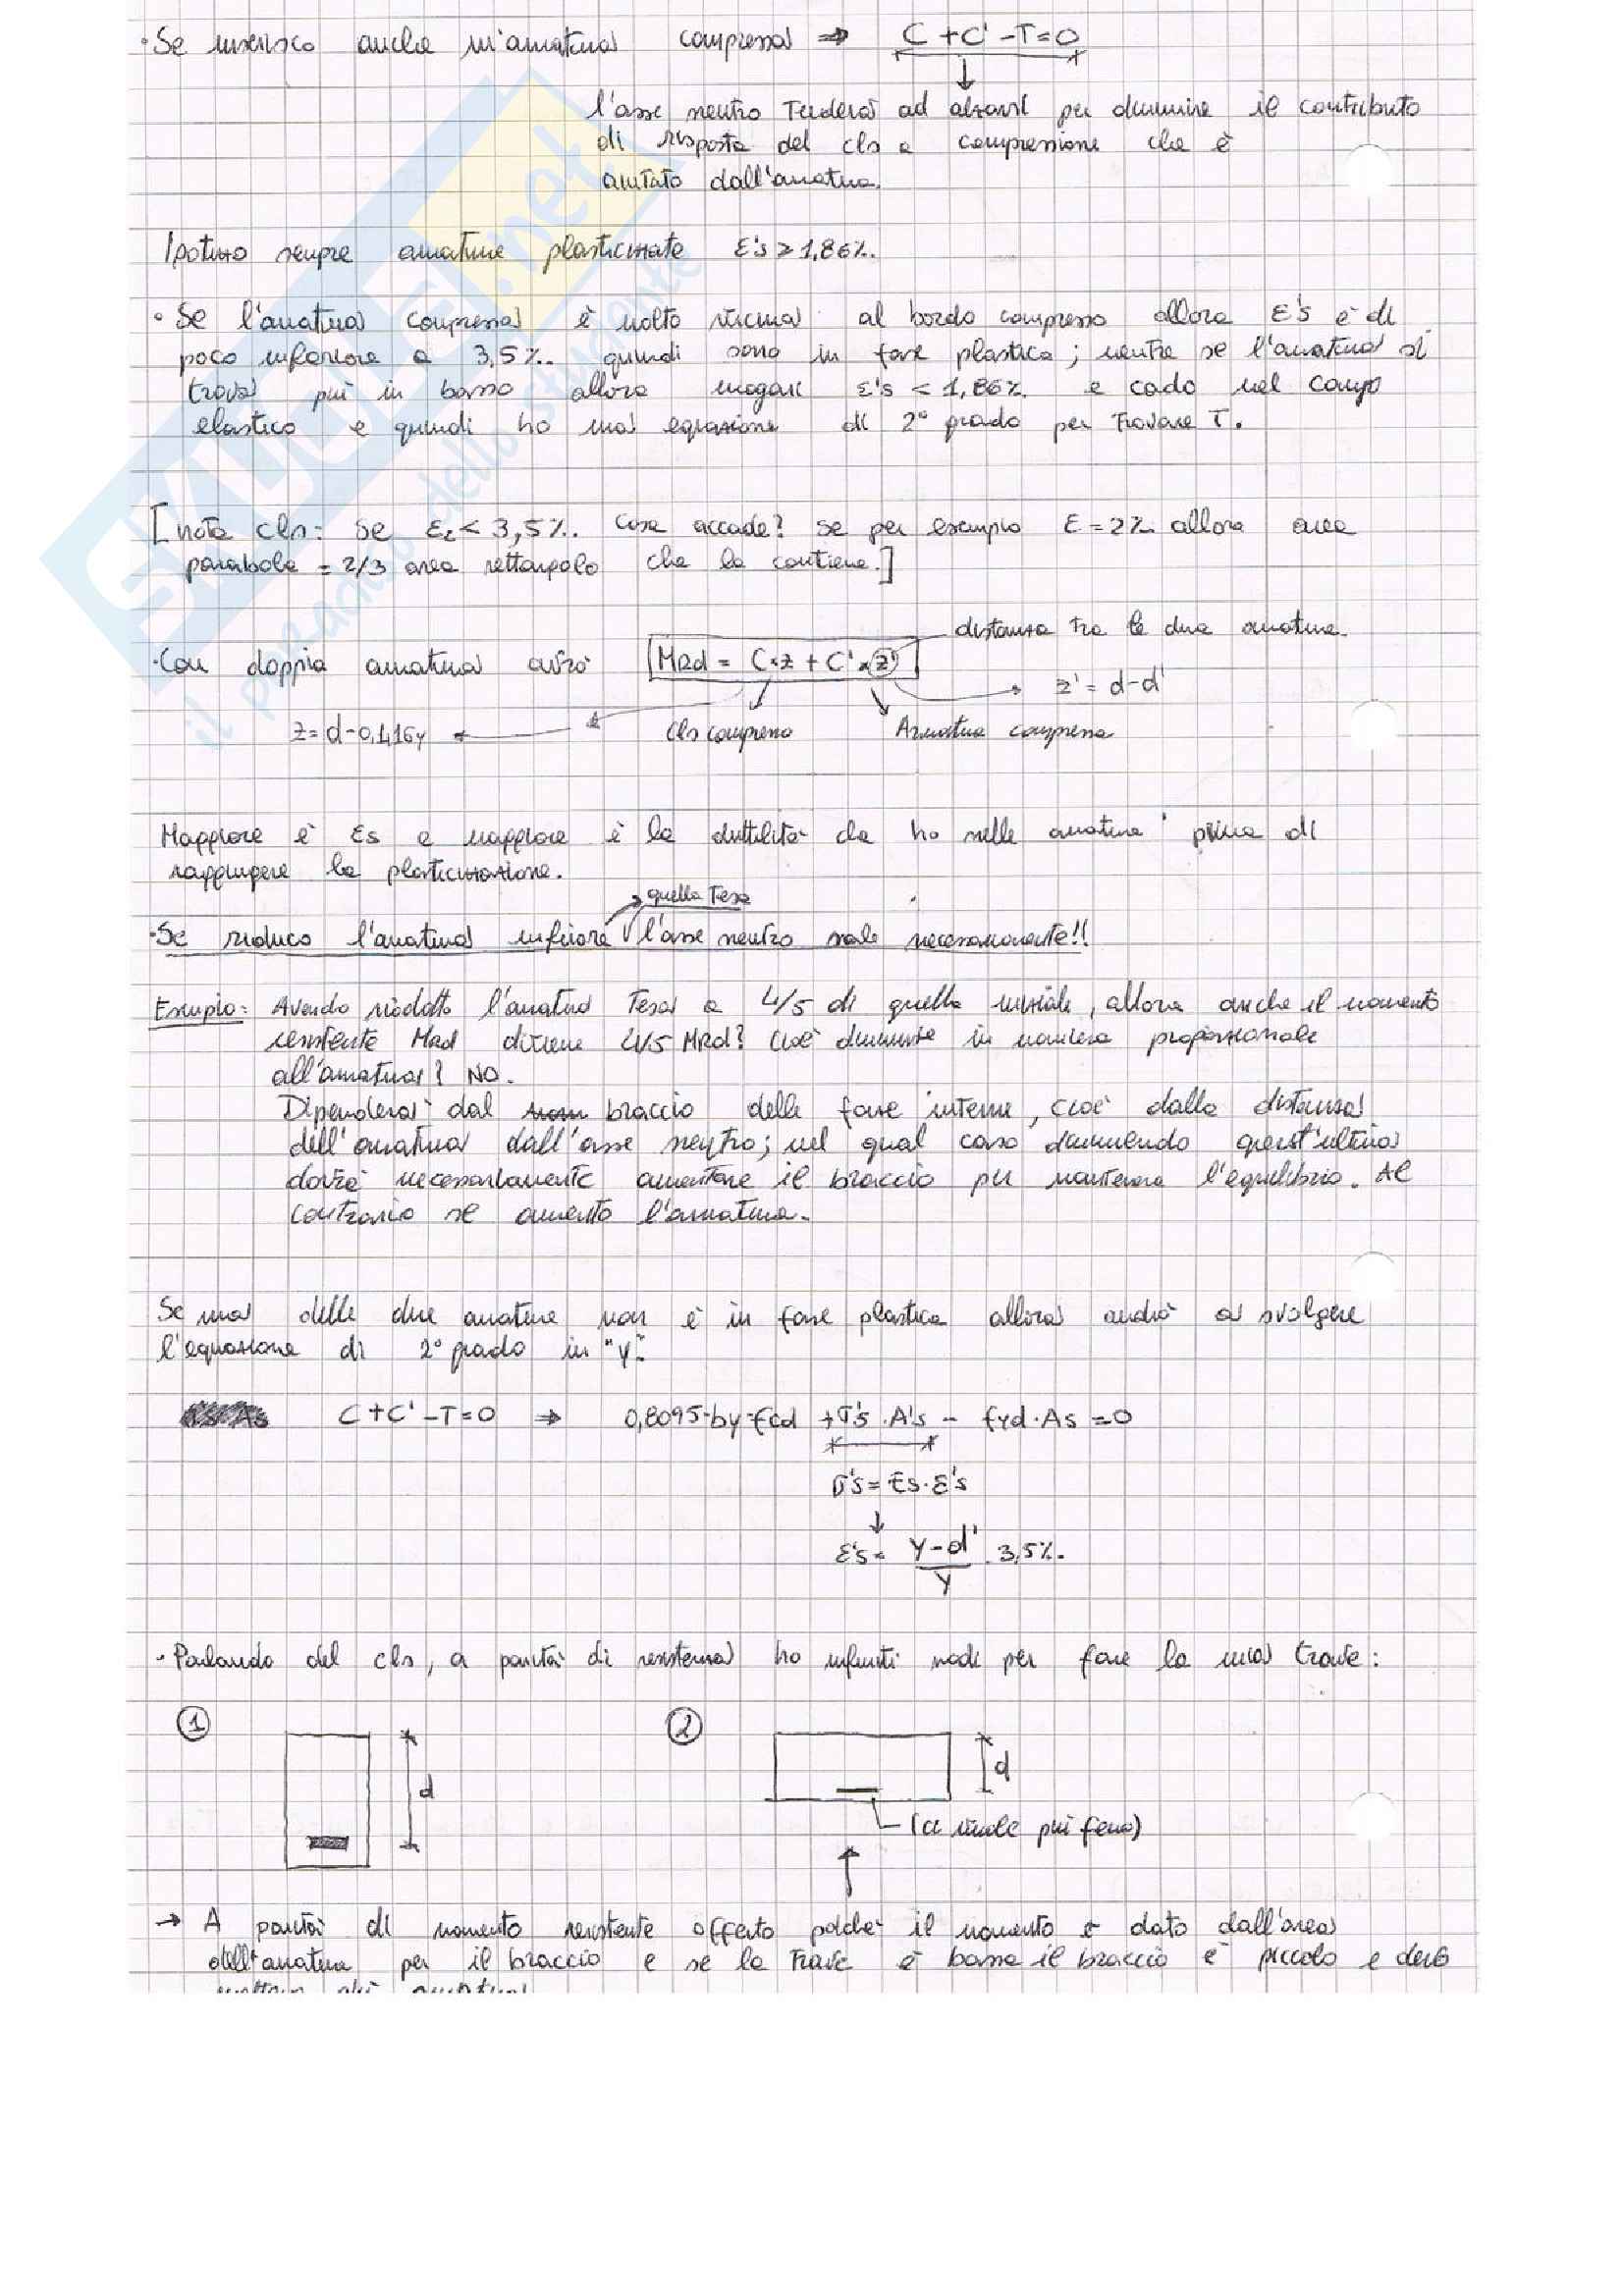 · Se inserisco anche un'armatura compressa ⇒ C + C' - T = 0
l'asse neutro tenderà ad alzarsi per diminuire il contributo
di risposta del cls a compressione che è
aiutato dall'armatura.
Ipotizzo sempre armature plasticizzate ε's ≥ 1,86‰.
· Se l'armatura compressa è molto vicina al bordo compresso allora ε's è di
poco inferiore a 3,5‰ quindi sono in fase plastica; mentre se l'armatura si
trova più in basso allora magari ε's < 1,86‰ e cado nel campo
elastico e quindi ho una equazione di 2° grado per trovare T.
[nota cls: se εc < 3,5‰. Cosa accade? Se per esempio ε = 2‰ allora area
parabola = 2/3 area rettangolo che la contiene.]
distanza tra le due armature.
· Con doppia armatura avrò MRd = C·z + C'·z'
z' = d-d'
z = d-0,416y cls compresso Armatura compressa
Maggiore è εs e maggiore è la duttilità che ho nelle armature prima di
raggiungere la plasticizzazione.
quella tesa
· Se riduco l'armatura inferiore l'asse neutro sale necessariamente!!
Esempio: Avendo ridotto l'armatura tesa a 4/5 di quella iniziale, allora anche il momento
resistente MRd diviene 4/5 MRd? Cioè diminuisce in maniera proporzionale
all'armatura? NO.
Dipenderà dal braccio delle forze interne, cioè dalla distanza
dell'armatura dall'asse neutro; nel qual caso diminuendo quest'ultima
dovrà necessariamente aumentare il braccio per mantenere l'equilibrio. Al
contrario se aumento l'armatura.
Se una delle due armature non è in fase plastica allora andrò a svolgere
l'equazione di 2° grado in "y".
C + C' - T = 0 ⇒ 0,8095·by·fcd + σ's·A's - fyd·As = 0
σ's = Es·ε's
↓
ε's = (y-d')/y · 3,5‰
· Parlando del cls, a parità di resistenza ho infiniti modi per fare la mia trave:
① ②
d d
(ci vuole più ferro)
→ A parità di momento resistente offerto poichè il momento è dato dall'area
dell'armatura per il braccio e se la trave è bassa il braccio è piccolo e devo
mettere più armatura
il paradiso dello studente